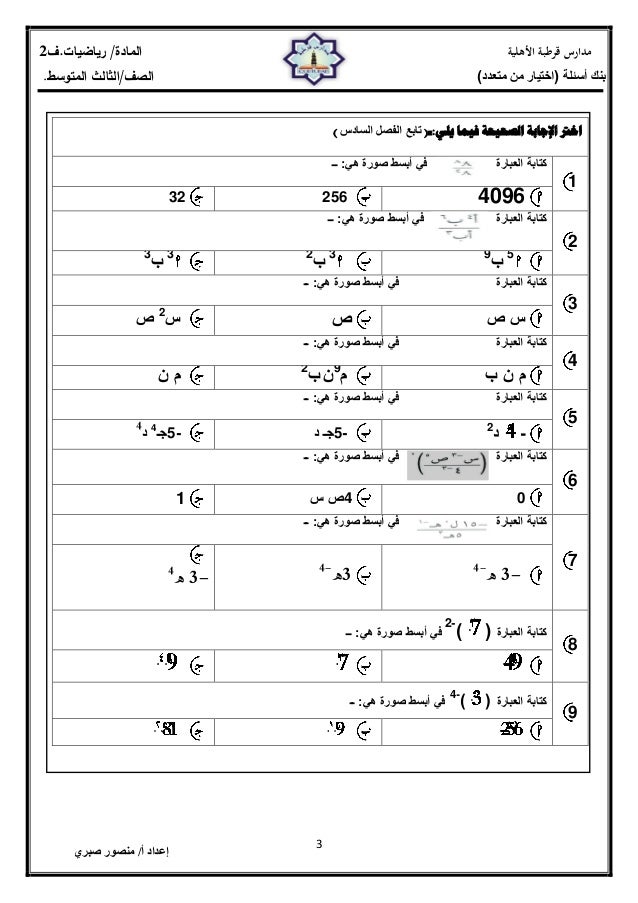 مدارس قرطبة الأهلية
المادة/ رياضيات.ف2
بنك أسئلة (اختيار من متعدد)
الصف/الثالث المتوسط.
اختر الإجابة الصحيحة فيما يلي:ـ(تابع الفصل السادس)
1) كتابة العبارة في أبسط صورة هي: ــ
أ) 4096 ب) 256 ج) 32
2) كتابة العبارة في أبسط صورة هي: ــ
أ) أ⁵ ب⁹ ب) أ³ ب² ج) أ³ ب³
3) كتابة العبارة في أبسط صورة هي: ــ
أ) س ص ب) ص ج) س² ص
4) كتابة العبارة في أبسط صورة هي: ــ
أ) م ن ب ب) م⁹ن ب² ج) م ن
5) كتابة العبارة في أبسط صورة هي: ــ
أ) - 4 د² ب) -5جـ د ج) -5جـ⁴ د⁴
6) كتابة العبارة في أبسط صورة هي: ــ
أ) 0 ب) 4ص س ج) 1
7) كتابة العبارة في أبسط صورة هي: ــ
أ) –3 هـ⁻⁴ ب) 3هـ⁻⁴ ج) –3 هـ⁴
8) كتابة العبارة (7)⁻² في أبسط صورة هي: ــ
أ) 49 ب) 7 ج)
9) كتابة العبارة (3)⁻⁴ في أبسط صورة هي: ــ
أ) ب) ج)
3
إعداد أ/ منصور صبري